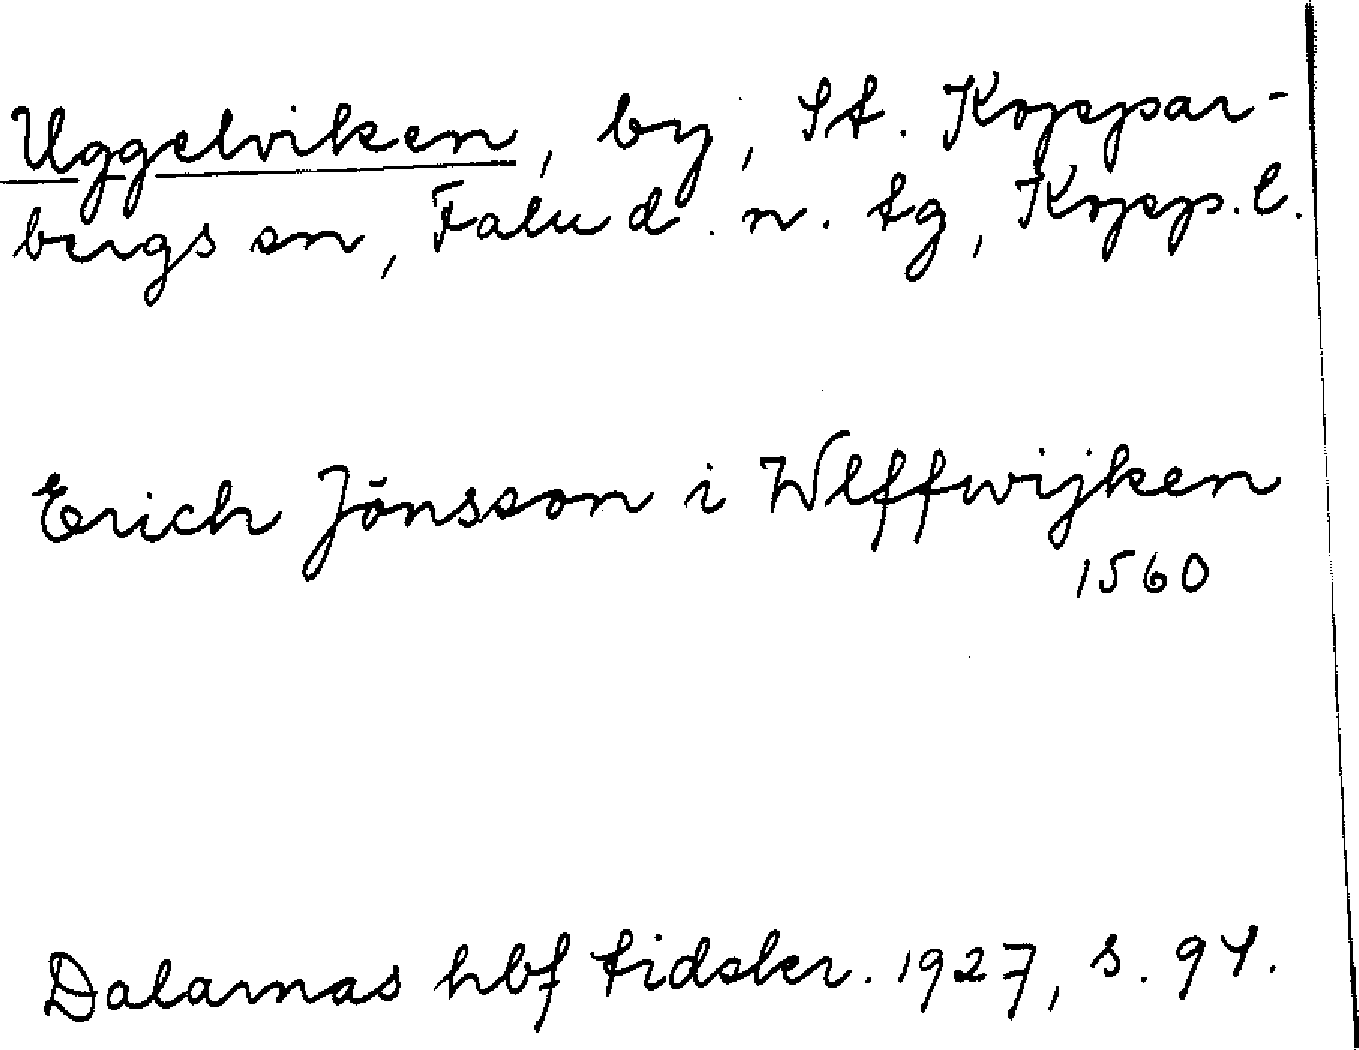 Uggelviken, by, St. Koppar-
bergs sn, Falu d. n. tg, Kopp. l.
Erich Jönsson i Wlffwijken
1560
Dalarnas hbf tidskr. 1927, s. 94.